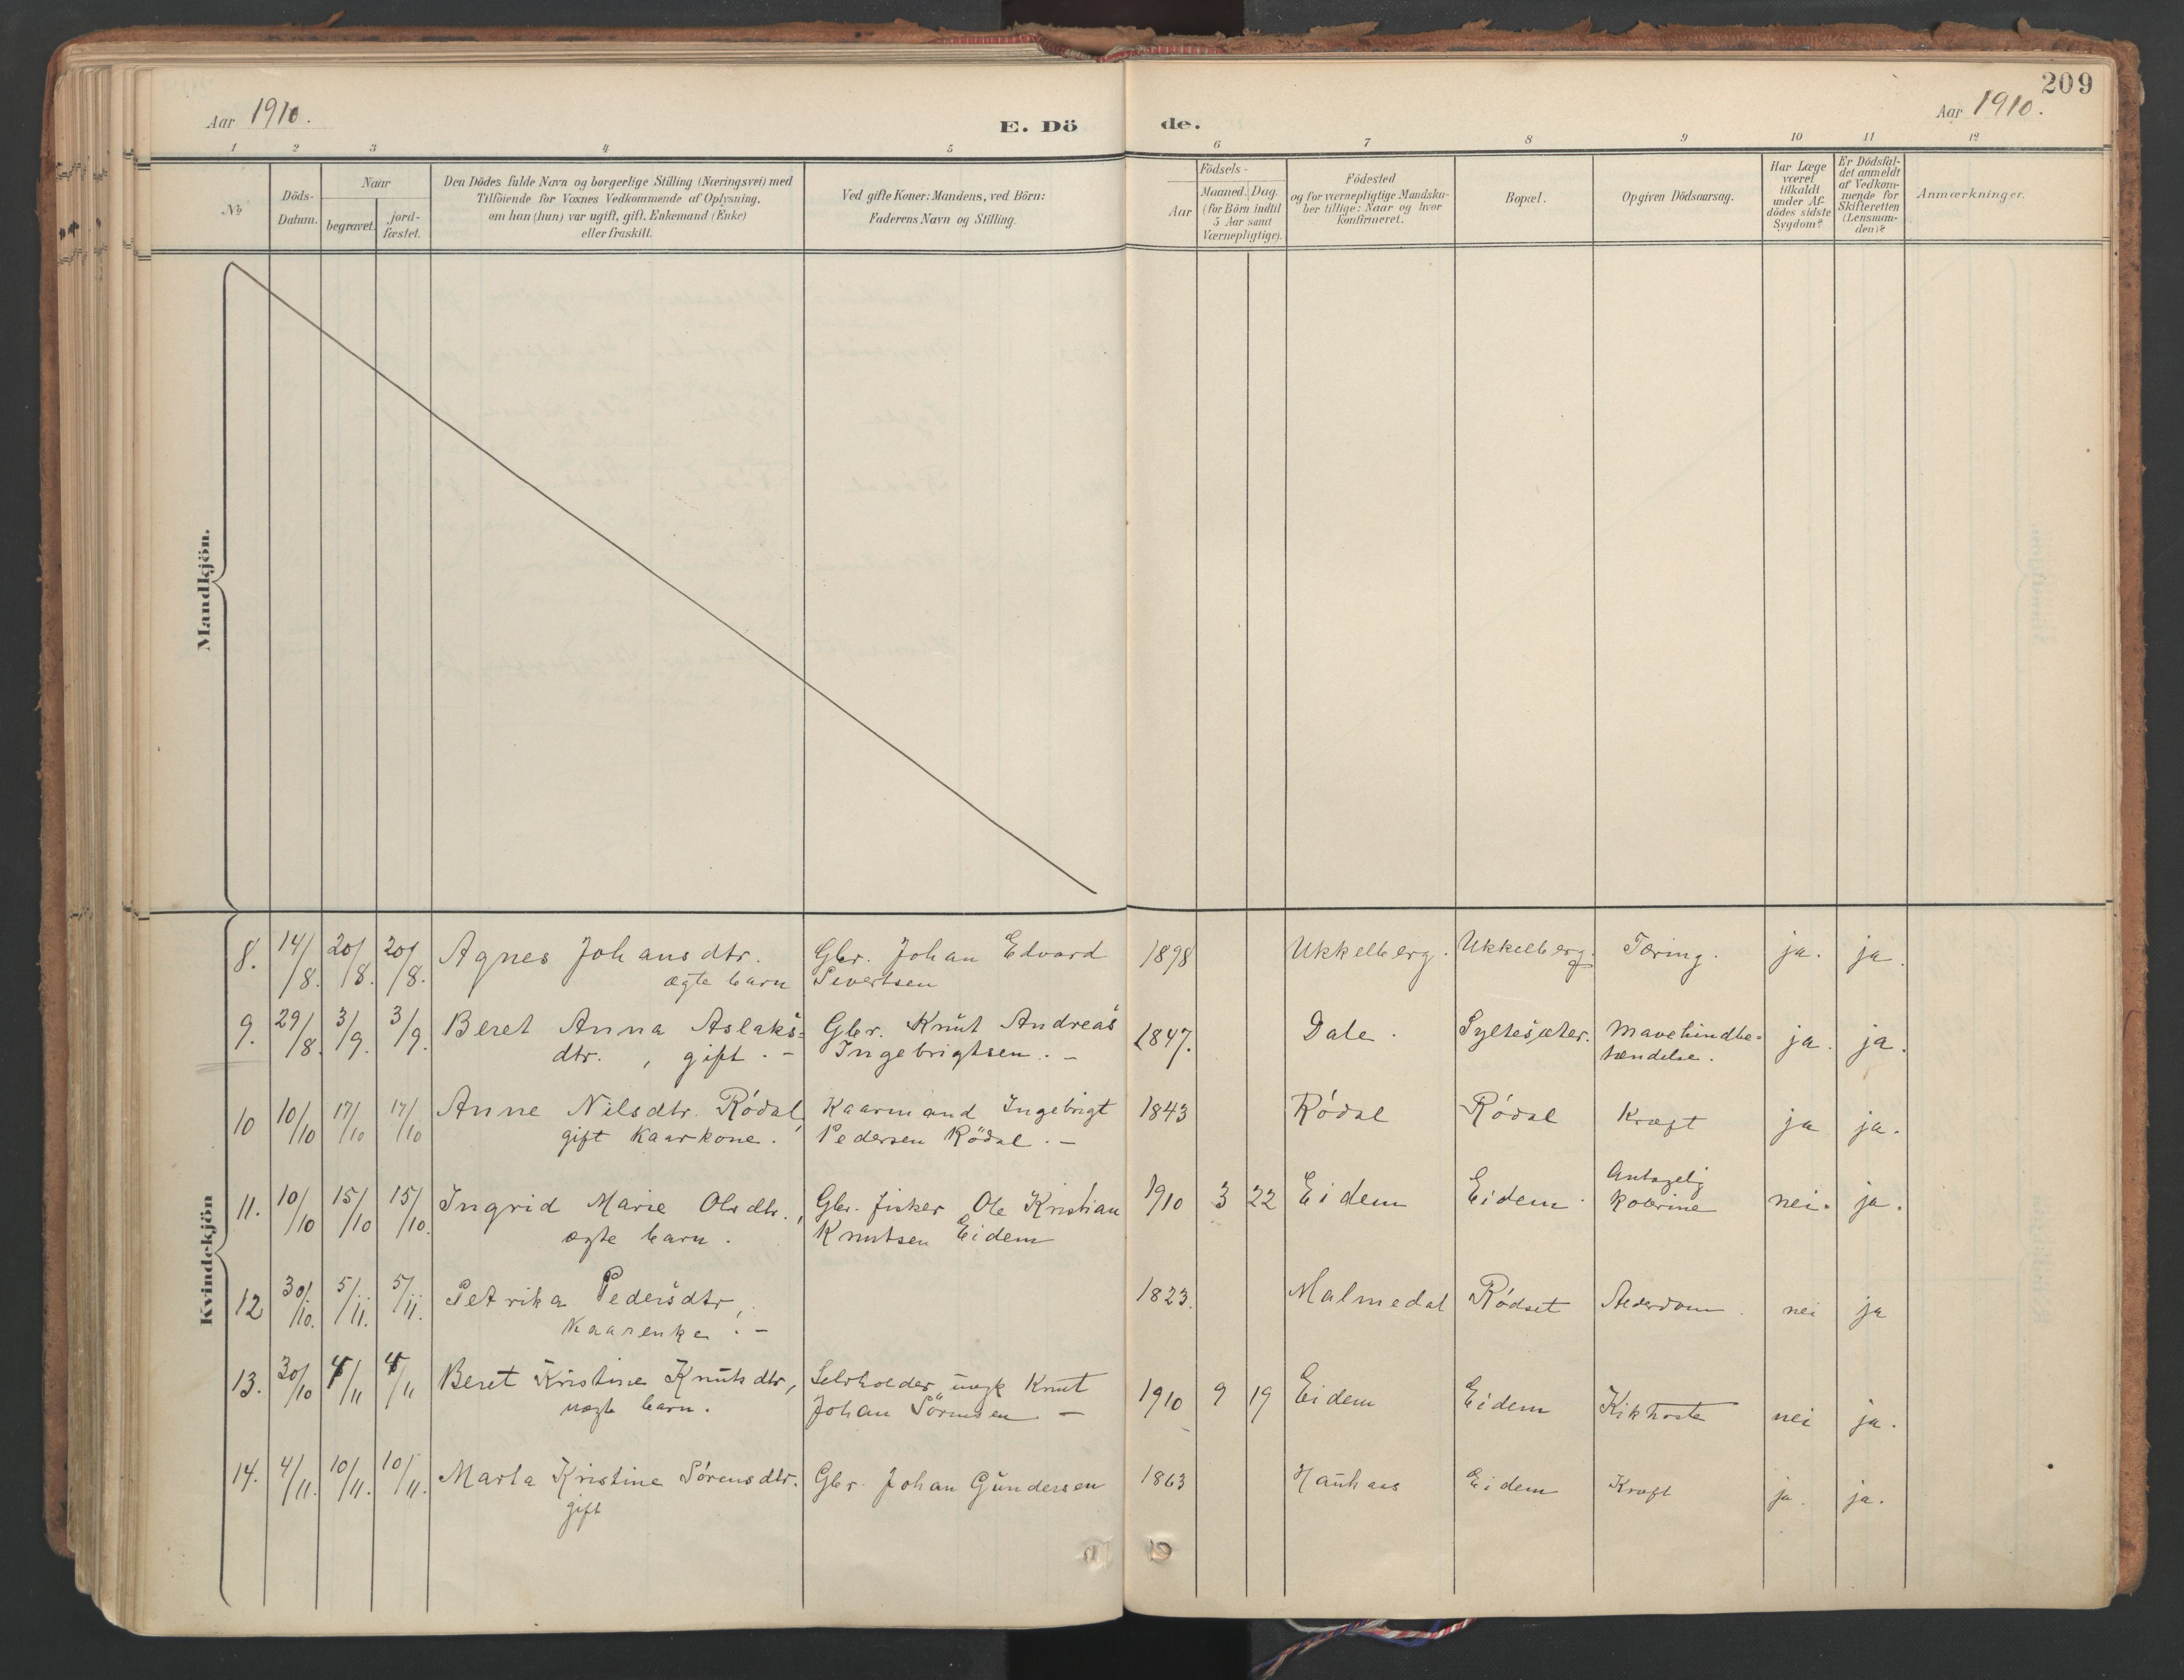 209
Aar 1910. E. Dö de. Aar 1910.
1 2 3 4 5 6 7 8 9 10 11 12
No
Döds-Datum.
Naar
begravet.
jord-fæstet.
Den Dödes fulde Navn og borgerlige Stilling (Næringsvei) med
Tilföiende for Voxnes Vedkommende af Oplysning,
om han (hun) var ugift, gift, Enkemand (Enke)
eller fraskilt.
Ved gifte Koner: Mandens, ved Börn:
Faderens Navn og Stilling.
Födsels-
Aar
Maaned. Dag.
(for Börn indtil
5 Aar samt
Værnepligtige).
Födested
og for værnepligtige Mandska-
ber tillige: Naar og hvor
konfirmeret.
Bopæl.
Opgiven Dödsaarsag.
Har Læge
været
tilkaldt
under Af-
dödes sidste
Sygdom?
Er Dödsfal-
det anmeldt
af Vedkom-
mende for
Skifteretten
(Lensman-
den)?
Anmærkninger.
Mandkjön.
Kvindekjön
8. 14/8. 20/8. 20/8. Agnes Johansdtr. Gbr. Johan Edvard 1898 Ukkelberg. Ukkelberg. Tæring. ja. ja.
ægte barn Sivertsen
9. 29/8. 3/9. 3/9. Beret Anna Aslaks- Gbr. Knut Andreas 1847. Dale. Syltesæter. Mavehindbe- ja. ja.
dtr., gift. - Ingebrigtsen. - tændelse.
10 10/10 17/10 17/10 Anne Nilsdtr. Rødal, Kaarmand Ingebrigt 1843 Rødal Rødal Kræft ja ja.
gift Kaarkone. Pedersen Rødal. -
11. 10/10 15/10 15/10. Ingrid Marie Olsdtr., Gbr. fisker Ole Kristian 1910 3 22 Eidem Eidem. Antagelig nei. ja.
ægte barn. Knutsen Eidem
12 30/10. 5/11. 5/11. Petrika Pedersdtr, 1823. Malmedal Rødset Alderdom. nei ja
Kaarenke. -
13. 30/10 4/11 4/11 Beret Kristine Knutsdtr, Selvholder ungk Knut 1910 9 19 Eidem Eidem Kikhoste nei ja.
uægte barn. Johan Sørensen -
14. 4/11. 10/11. 10/11. Marta Kristine Sørensdtr. Gbr. Johan Gundersen 1863 Hauhaas Eidem Kræft ja. ja.
gift